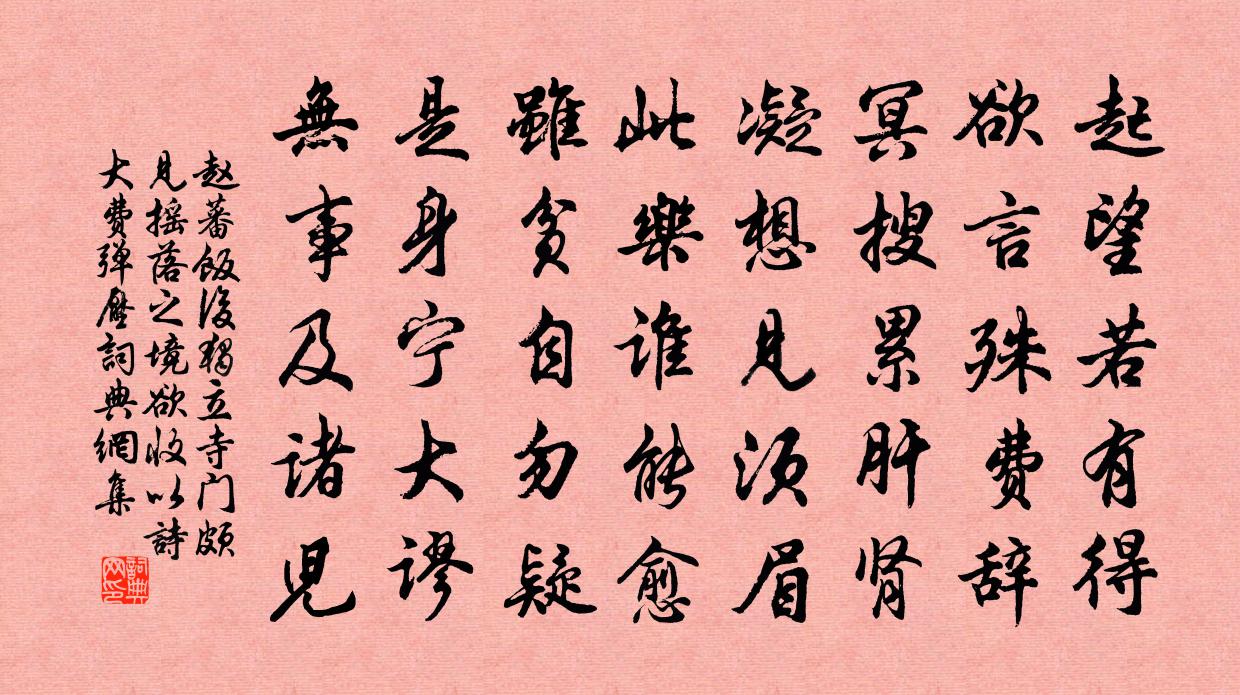 起望若有得
欲言殊費辞
冥搜累肝肾
凝想見须眉
此樂谁能愈
雖贫自勿疑
是身宁大謬
無事及诸児
赵蕃飯後獨立寺门颇
見摇落之境欲收以詩
大費弹壓詞典網集